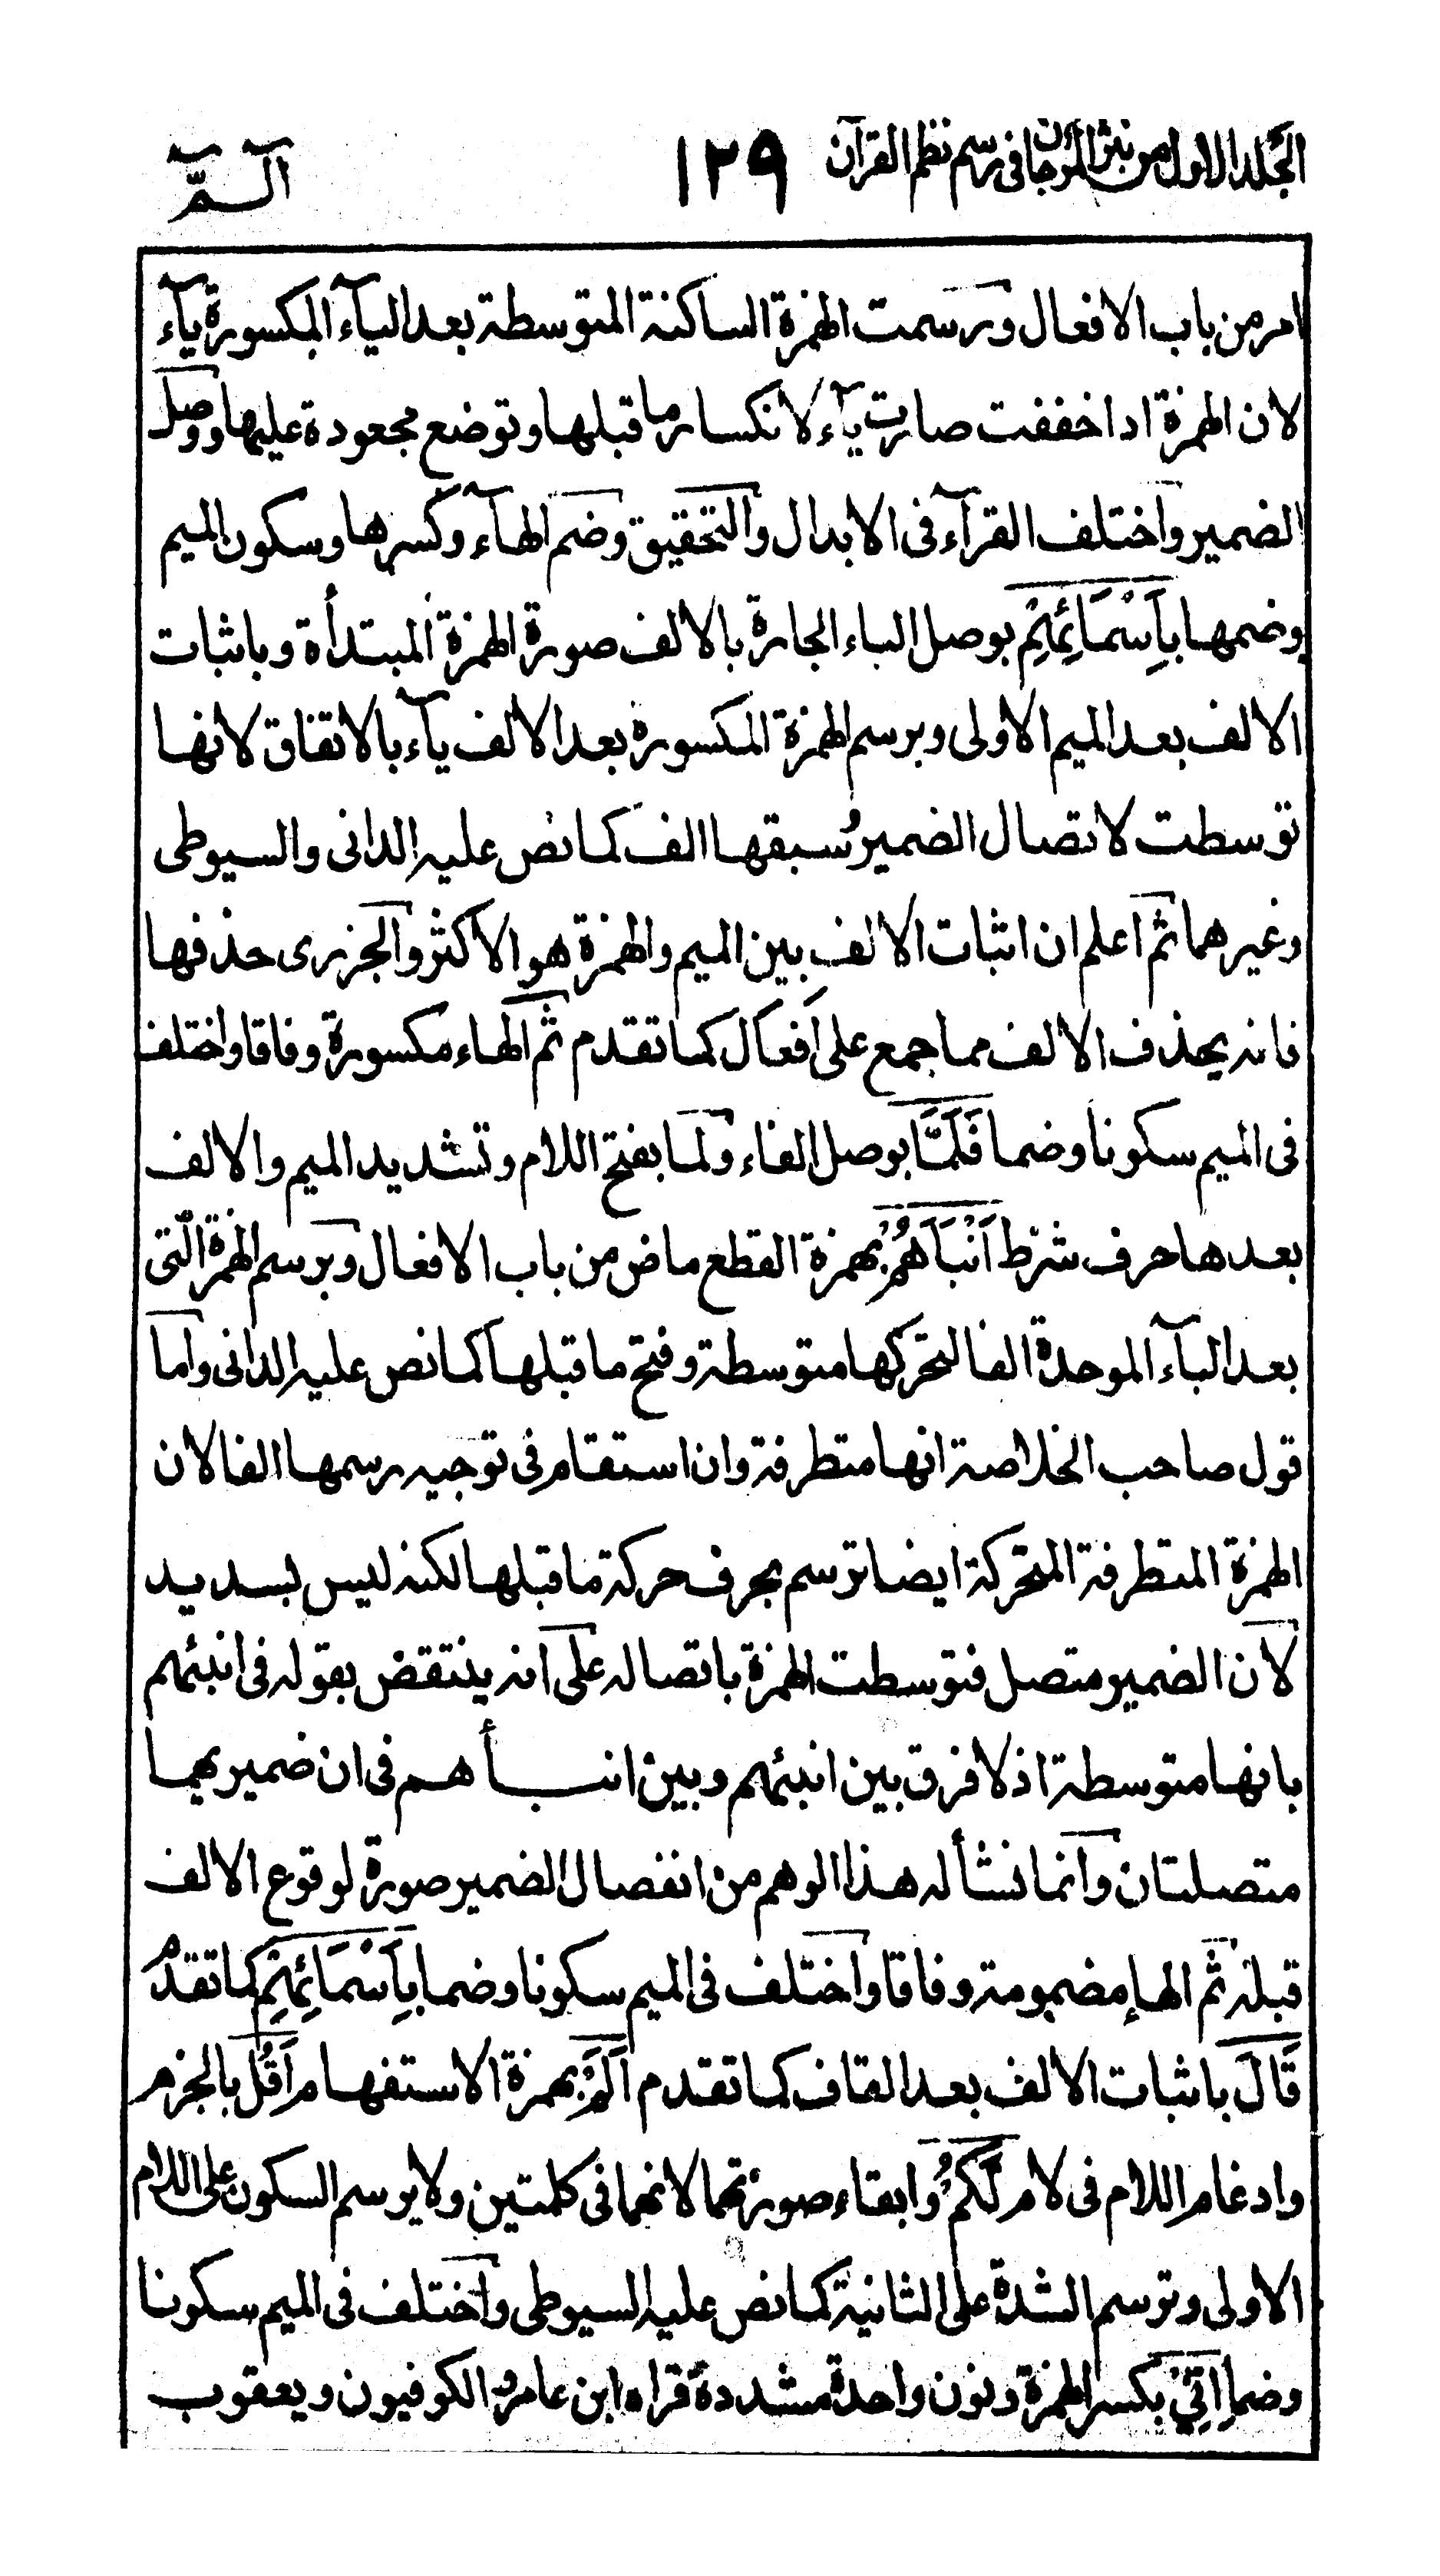 المجلد الاول من نثر المرجان فى رسم نظم القرآن ١٢٩ الٓمّٓ
امر من باب الافعال ورسمت الهمزة الساكنة المتوسطة بعد الباء المكسورة يآء
لان الهمزة اذا خففت صارت يآء لانكسار ما قبلها وتوضع مجعودة عليها ووصل
الضمير واختلف القرآء فى الابدال والتحقيق وضم الهآء وكسرها وسكون الميم
وضمها بِاَسْمَائِهِمْ بوصل الباء الجارة بالالف صورة الهمزة المبتدأة وباثبات
الالف بعد الميم الاولى وبرسم الهمزة المكسورة بعد الالف يآء بالاتفاق لانها
توسطت لاتصال الضمير وسبقها الف كما نص عليه الدانى والسيوطى
وغيرهما ثم اعلم ان اثبات الالف بين الميم والهمزة هو الاكثر والجزرى حذفها
فانه يحذف الالف مما جمع على اَفعال كما تقدم ثم الهاء مكسورة وفاقا واختلف
فى الميم سكونا وضما فَلَمَّا بوصل الفاء ولما بفتح اللام وتشديد الميم والالف
بعدها حرف شرط اَنْبَاَهُمْ بهمزة القطع ماض من باب الافعال وبرسم الهمزة الّتى
بعد البآء الموحدة الفا لتحركها متوسطة وفتح ما قبلها كما نص عليه الدانى واما
قول صاحب الخلاصة انها متطرفة وان استقام فى توجيه رسمها الفا لان
الهمزة المتطرفة المتحركة ايضا ترسم بحرف حركة ما قبلها لكنه ليس بسديد
لان الضمير متصل فتوسطت الهمزة باتصاله على انه ينتقض بقوله فى انبئهم
بانها متوسطة اذ لا فرق بين انبئهم وبين انبـأهم فى ان ضميريهما
متصلتان وانما نشأ له هذا الوهم من انفصال الضمير صورة لوقوع الالف
قبله ثم الهاء مضمومة وفاقا واختلف فى الميم سكونا وضما بِاَسْمَائِهِمْ كما تقدم
قَالَ باثبات الالف بعد القاف كما تقدم اَلَمْ بهمزة الاستفهام اَقُلْ بالجزم
وادغام اللام فى لام لَّكُمْ وابقاء صورتهما لانهما فى كلمتين ولا يرسم السكون على اللام
الاولى وترسم الشدة على الثانية كما نص عليه السيوطى واختلف فى الميم سكونا
وضما اِنِّيْ بكسر الهمزة ونون واحدة مشددة قراه ابن عامر والكوفيون ويعقوب